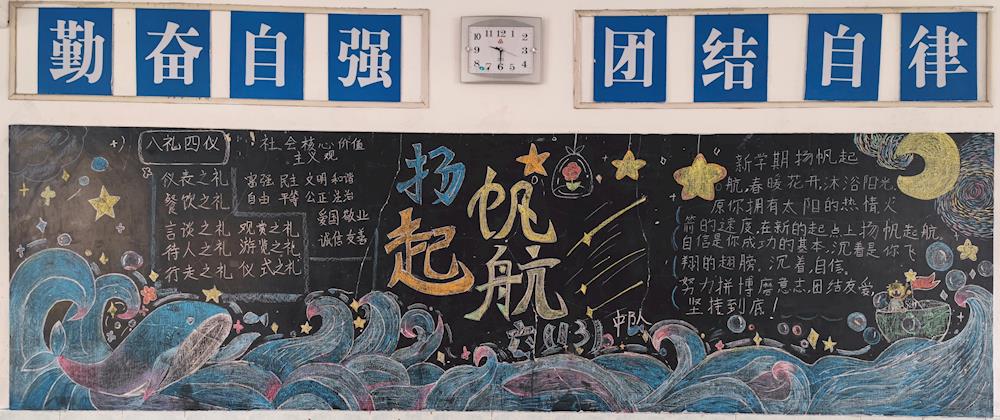 勤奋自强
团结自律
11 12 1
10 2
9 3
8 4
7 6 5
八礼四仪
仪表之礼
餐饮之礼
言谈之礼 观赏之礼
待人之礼 游览之礼
行走之礼 仪式之礼
社会核心价值
主义观
富强 民主 文明 和谐
自由 平等 公正 法治
爱国 敬业
诚信 友善
扬起
帆航
中队
新学期扬帆起
航,春暖花开,沐浴阳光,
原你拥有太阳的热情火
箭的速度,在新的起点上扬帆起航,
自信是你成功的基本,沉着是你飞
翔的翅膀。沉着,自信。
努力拼博磨意志,团结友爱,
坚挂到底!